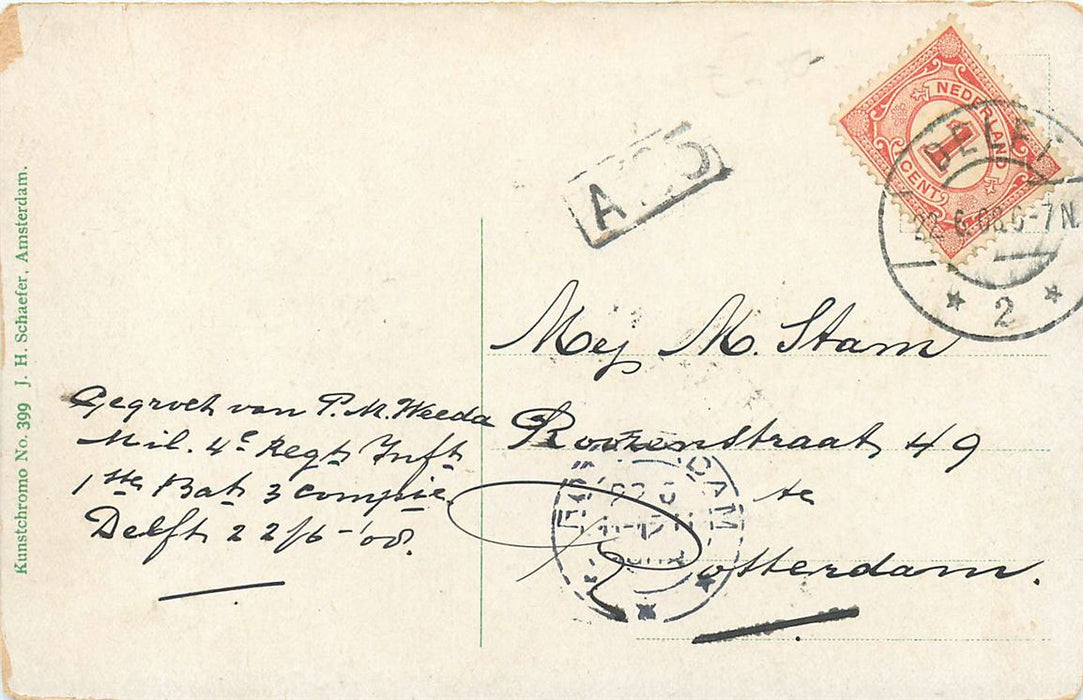 Kunstchromo No. 399 J. H. Schaefer, Amsterdam.
NEDERLAND
1
CENT
DELFT
22.6.08 6-7N.
2
A
Mej M. Stam
Roozenstraat 49
te
Rotterdam.
Gegroet van P. M. Weeda
Mil. 4e Regt Inft
1ste Bat 3 compie
Delft 22/6-'08.
DAM